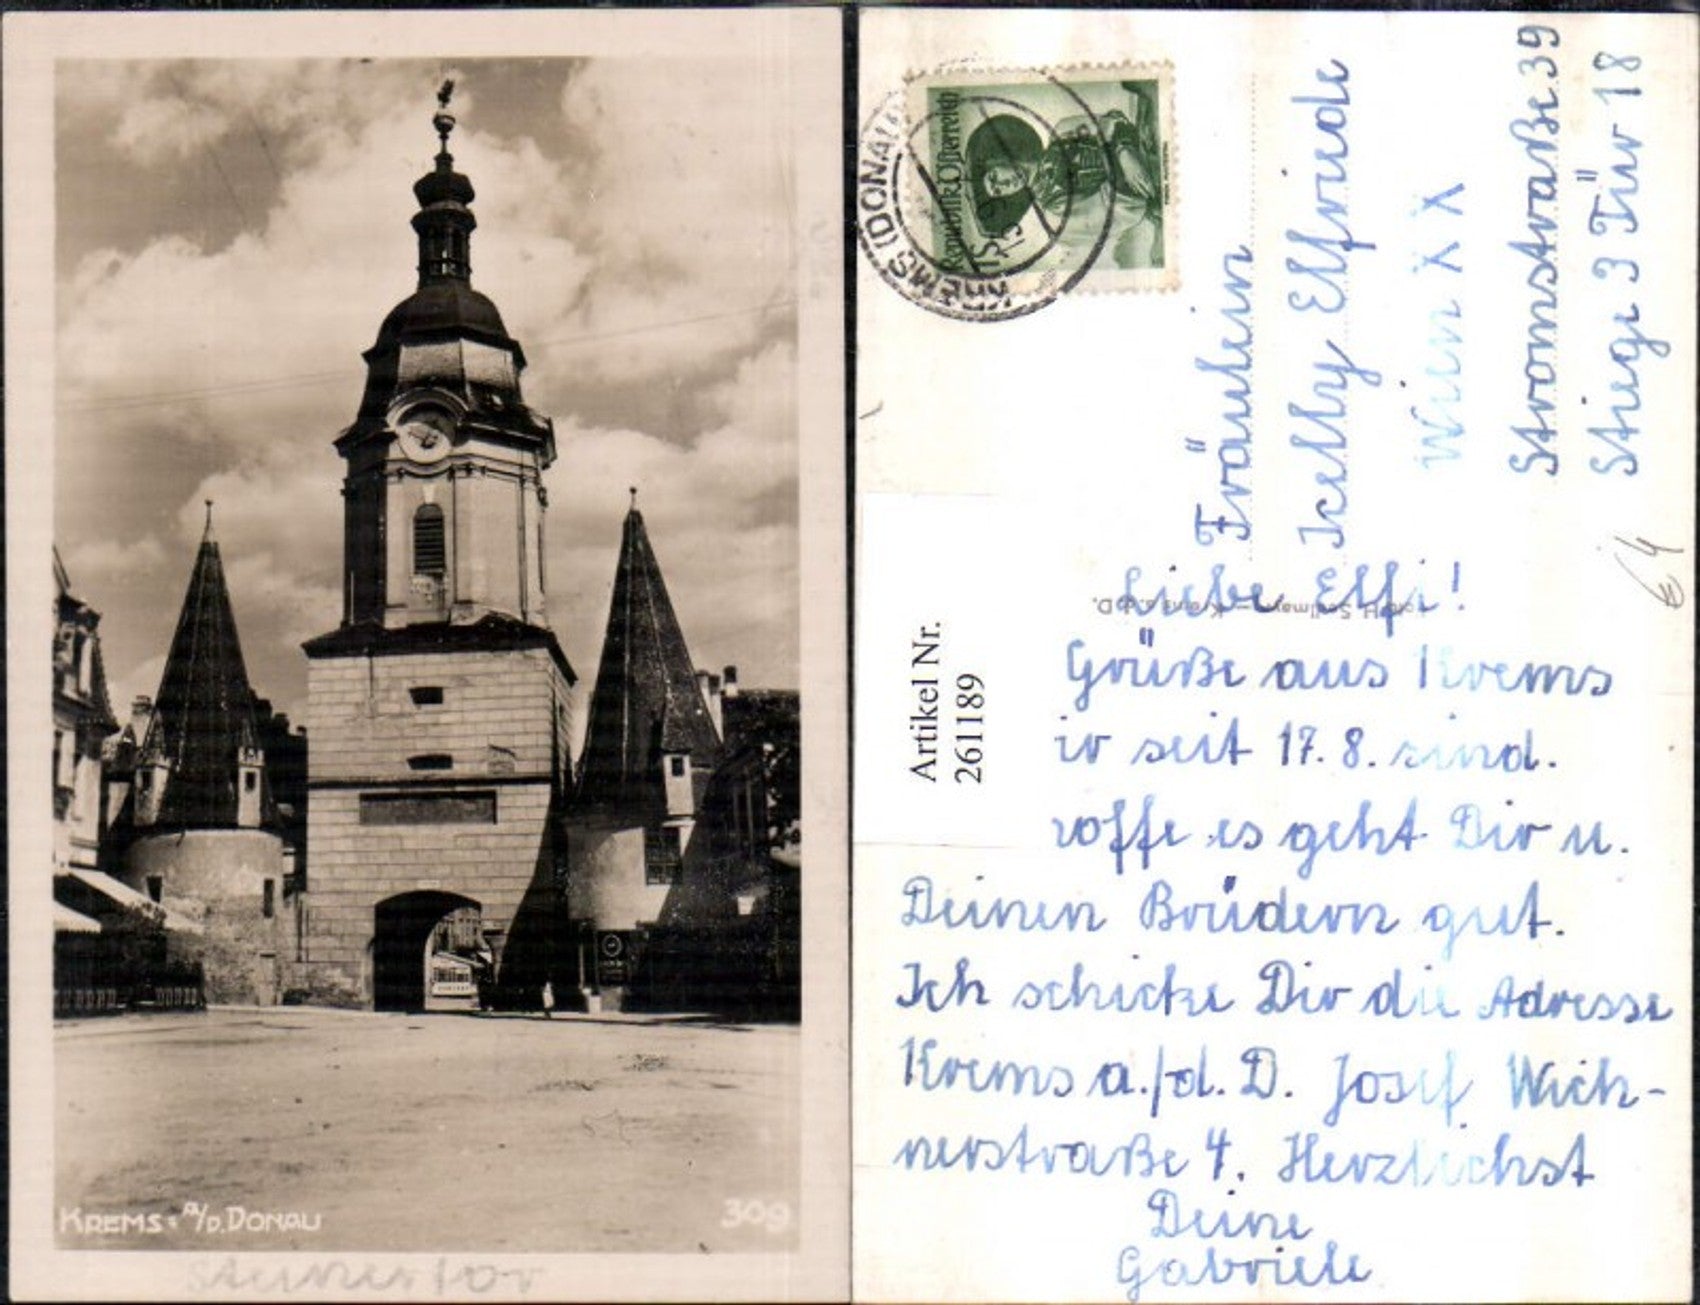 KREMS a/D. DONAU
309
Steinertor
KREMS (DONAU)
Republik Österreich
Fräulein
Elfriede
Wien XX
Stromstraße 39
Stiege 3 Tür 18
€ 4
Artikel Nr.
261189
Liebe Elfi!
Grüße aus Krems
ir seit 17. 8. sind.
offe es geht Dir u.
Deinen Brüdern gut.
Ich schicke Dir die Adresse
Krems a./d. D. Josef Wich-
nerstraße 4. Herzlichst
Deine
Gabriele